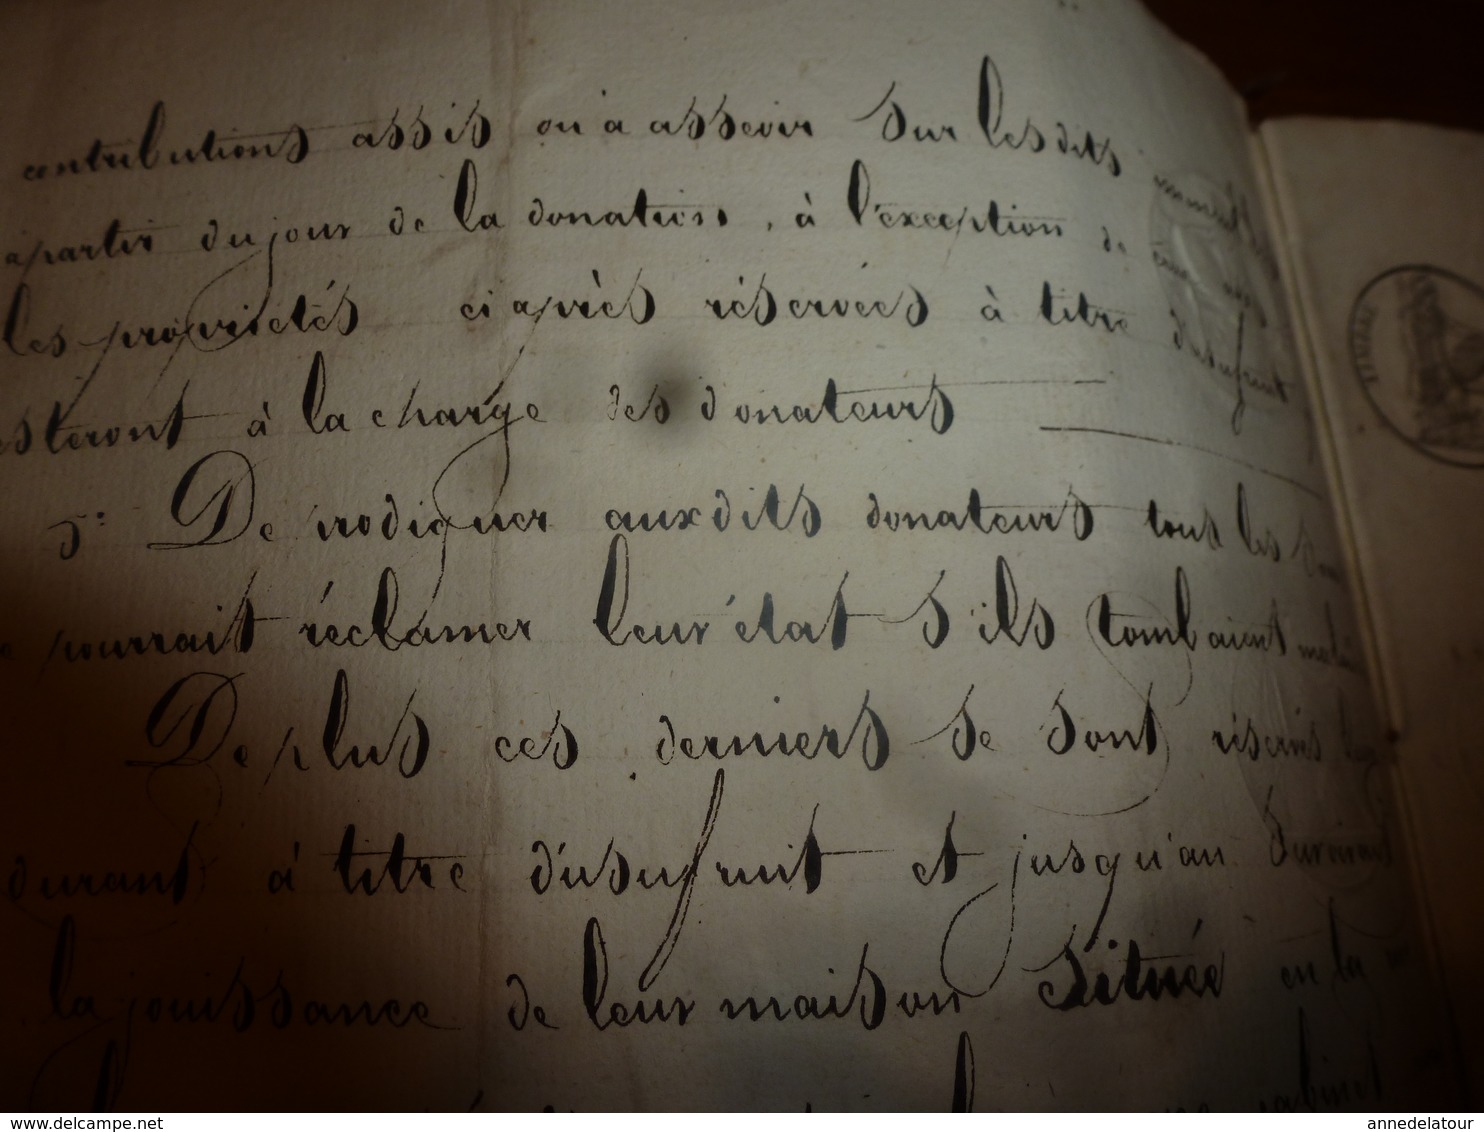 contributions assis ou à asseoir sur lesdits
apartir du jour de la donation, à l'exception de
les propriétés ci après réservées à titre d'usufruit
esteront à la charge des donateurs
5° De prodiguer auxdits donateurs tous les
pourrait réclamer leur état s'ils tombaient
De plus ces derniers se sont réservés
durant à titre d'usufruit et jusqu'au survivant
la jouissance de leur maison située en la
TIMBRE
annedelatour